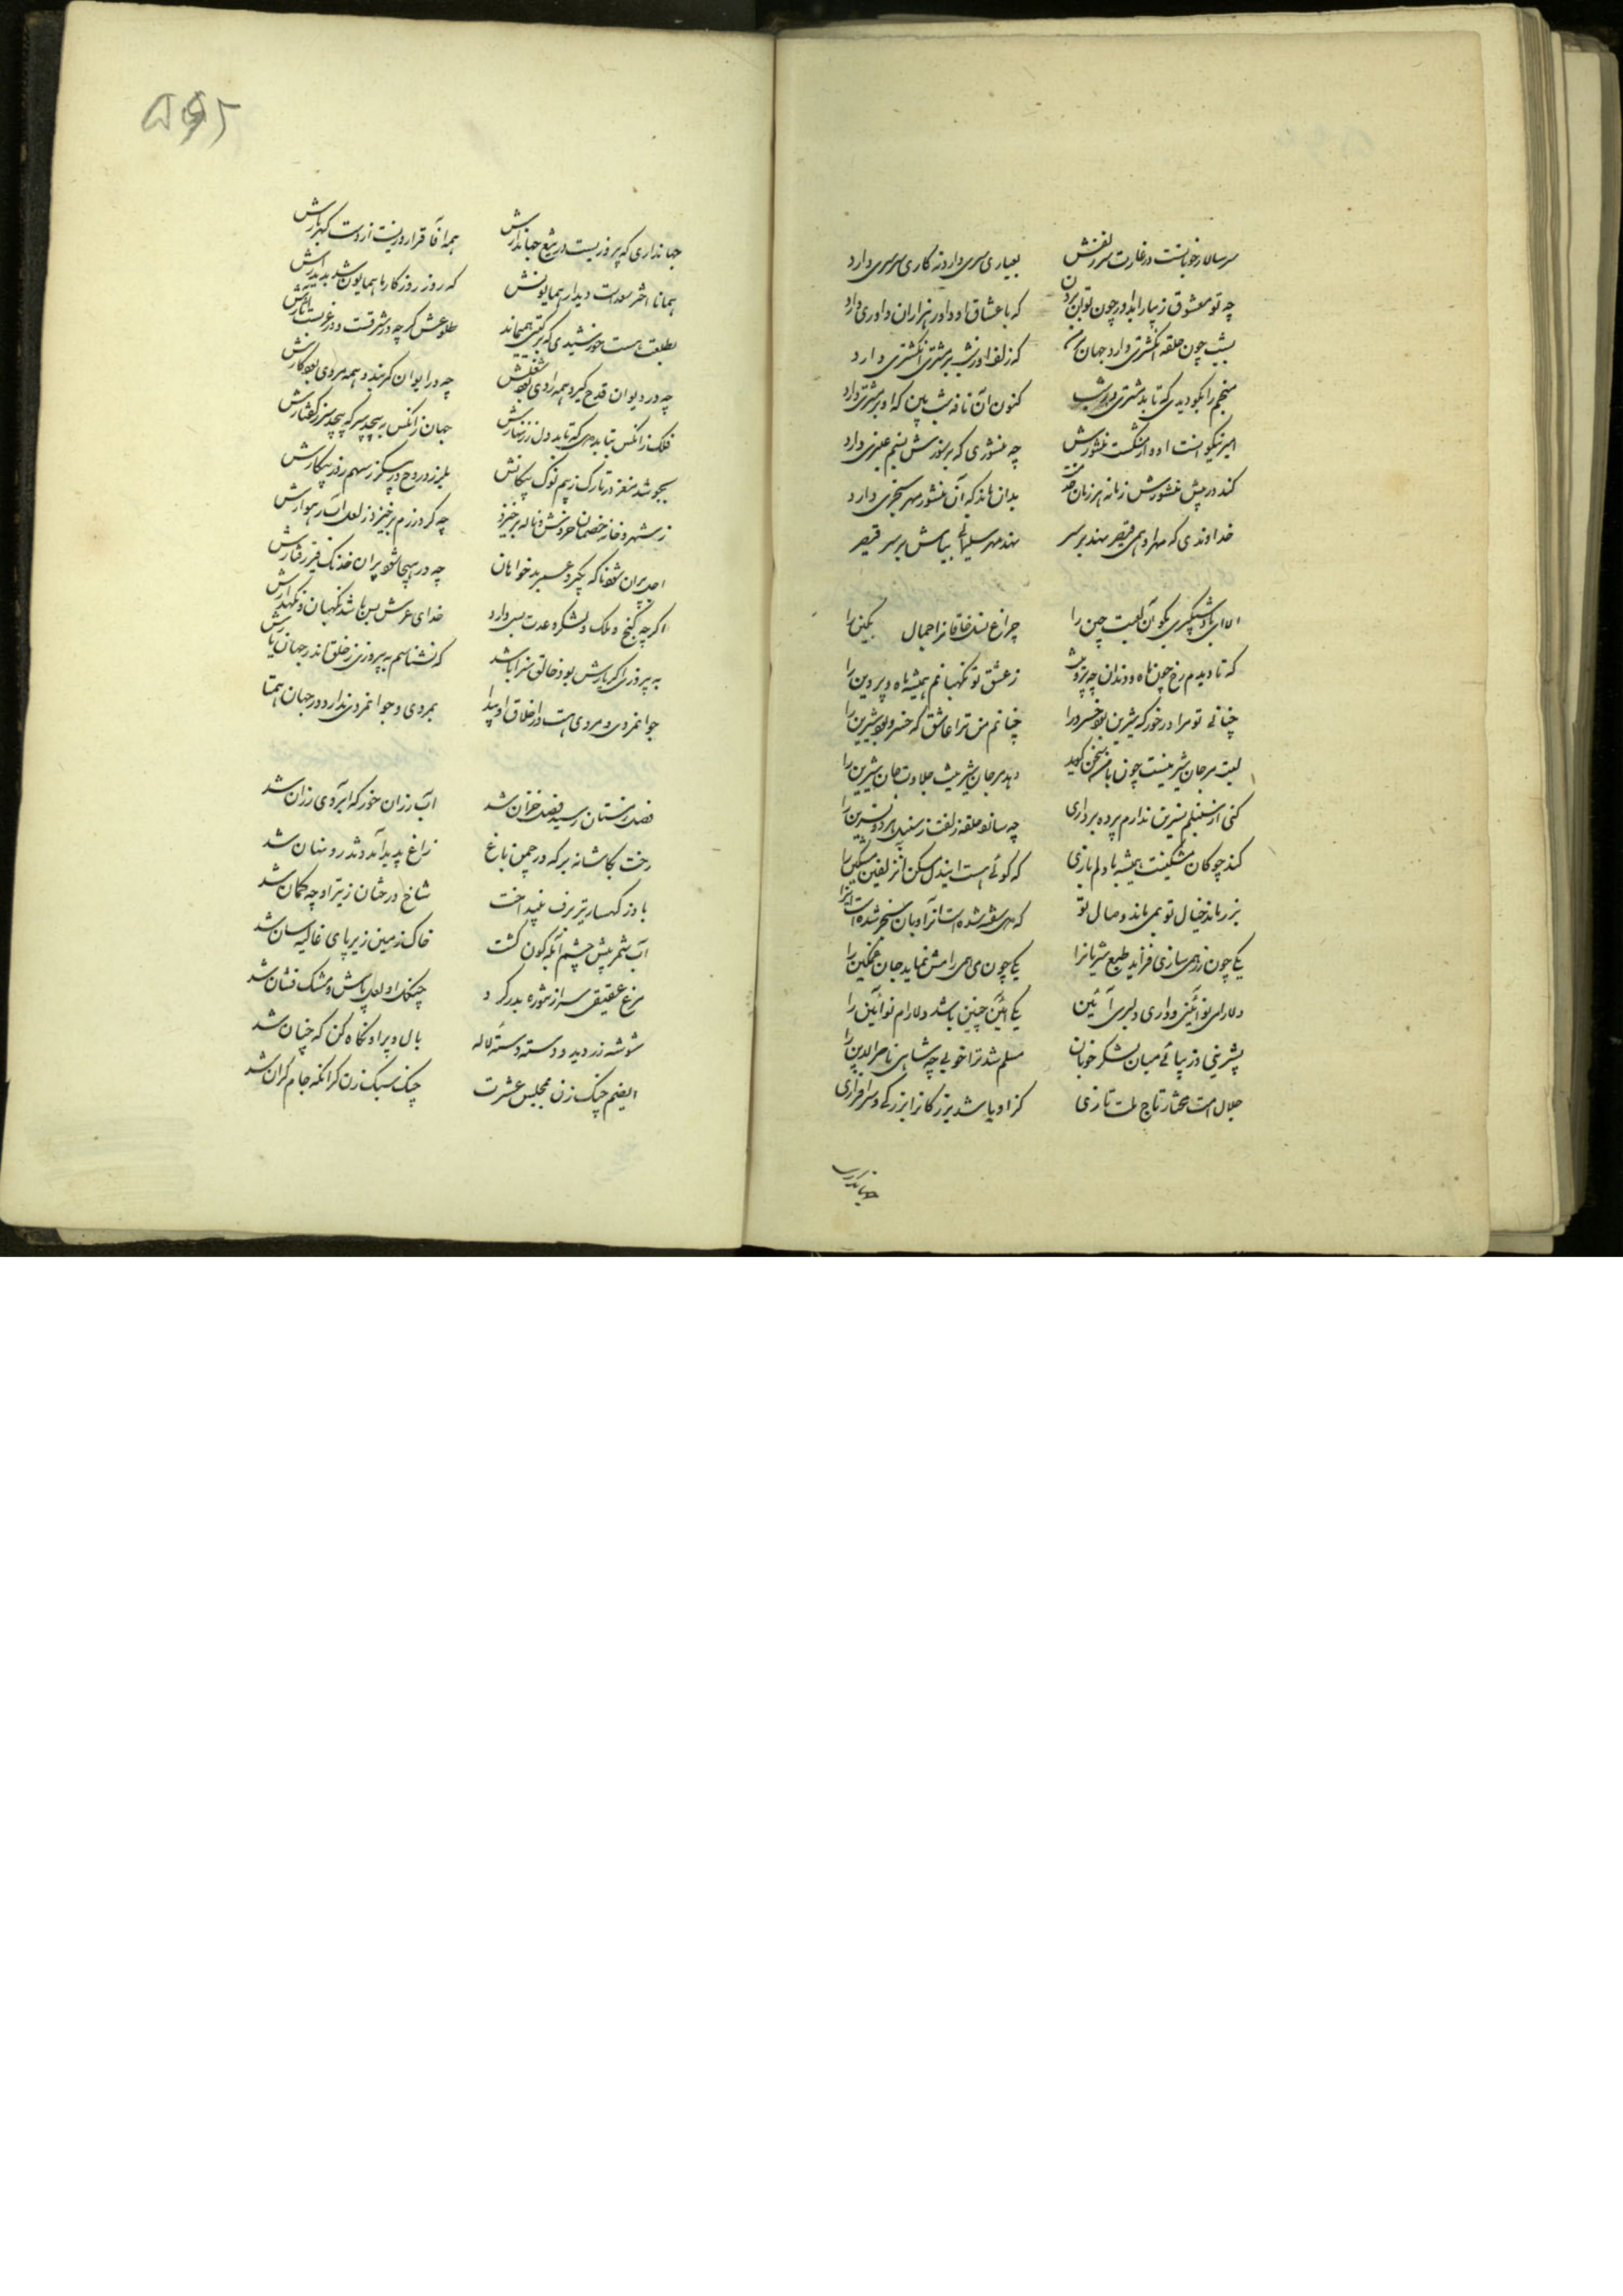 سر سالار خوبانست در غارت سر زلفش بعیاری سری دارد نه کاری سرسری دارد
چه تو معشوق زیبا را بداور چون توان بردن که با عشاق او داور هزاران داوری دارد
بشب چون حلقه انگشتری دارد جهان بر من که زلف او ز شب بر مشتری انگشتری دارد
منجم را بگو دیدی که تابد مشتری در شب کنون آن تافته شب بین که او بر مشتری دارد
امیر نیکوانست او و از مشکست منشورش چه منشوری که بر نورش نسیم عنبری دارد
کند در پیش منشورش زمانه هر زمان خدمت بدان ماند که آن منشور مهر سنجری دارد
خداوندی که مهر او همی قیصر نهد بر سر نهد مهر سلیمانی بنامش بر سر قیصر
الا ای باد شبگیری بگو آن لعبت چین را چراغ نسل خاقانرا جمال تکین را
که تا دیدم رخ چون ماه و دندان چو پروینت ز عشق تو نگهبانم همیشه ماه و پروین را
چنانی تو مرا در خور که شیرین بود خسرو را چنانم من ترا عاشق که خسرو بود شیرین را
لبت مرجان شیرینست چون با من سخن گوید دهد مرجان شیرینت حلاوت جان شیرین را
کنی از سنبلم نسرین ندارم پرده برداری چه سانو حلقه زلفت ز سنبل پرده نسرین را
کند چوگان مشکینت همیشه با دلم بازی که گوئی هست این دل مسکن آن زلفین مشکین را
یکی چون زهر می سازی فزاید طبع شیرانرا یکی چون می همی رامش نماید جان غمگین را
دلارای نو آئینی و داری دلبری آئین یکی آئین چنین باشد دلارام نوآئین را
بشیرینی و زیبائی میان لشکر خوبان مسلم شد ترا خوبی چه شاهی ناصرالدین را
جلال امت مختار تاج ملت تازی کزاو باشد بزرگانرا بزرگی و سرافرازی
جهانداری که
جهانداری که پیروزیست در تیغ جهاندارش همه آفاق را روزیست از دست گهربارش
همانا اختر سعدست دیدار همایونش که روز روزگار ما همایون شد بدیدارش
بطلعت هست خورشیدی که بر گیتی همیماند طلوعش گر چه در شرقست و در غربست آثارش
چه در دیوان قدح گیرد همه رادی بود شغلش چه در ایوان کمر بندد همه مردی بود کارش
فلک زانکس بتابد مهر که تابد دل ز زنهارش جهان زانکس به پیچد سر که پیچد سر ز گفتارش
بجوشد مغز در تارک ز بیم نوک پیکانش بلرزد روح در پیکر ز سهم روز پیکارش
ز شهر و خانه خصمان خروش و ناله برخیزد چه گرد رزم برخیزد ز لعل اسب رهوارش
اجل پران شود ناگه بگیرد عمر بدخواهان چه در هیجا شود پران خدنگ تیز رفتارش
اگر چه گنج و ملک و لشکر و عدت بسی دارد خدای عرش بس باشد نگهبان و نگهدارش
به پیروزی اگر یارش بود خالق سزا باشد که نشناسم به پیروزی ز خلق اندر جهان یارش
جوانمردی و مردی هست در اخلاق او پیدا بمردی و جوانمردی ندارد در جهان همتا
فصل زمستان رسید فصل خزان شد آب رزان خور که آبروی رزان شد
رخت بکاشانه بر که در چمن باغ زاغ پدید آمد و تذرو نهان شد
باد ز کهسار تیر برف بینداخت شاخ درختان ز تیر او چه کمان شد
آب شمر پیش چشم آبگون گشت خاک زمین زیر پای غالیه سان شد
مرغ عقیقی سر از تنوره بدر کرد چنگل او لعل پاش و مشک فشان شد
شوشه زر دید و دسته دسته لاله بال و پر او نگاه کن که چنان شد
ای صنم چنگ زن بمجلس عشرت چنگ سبک زن گر آنکه جام گران شد